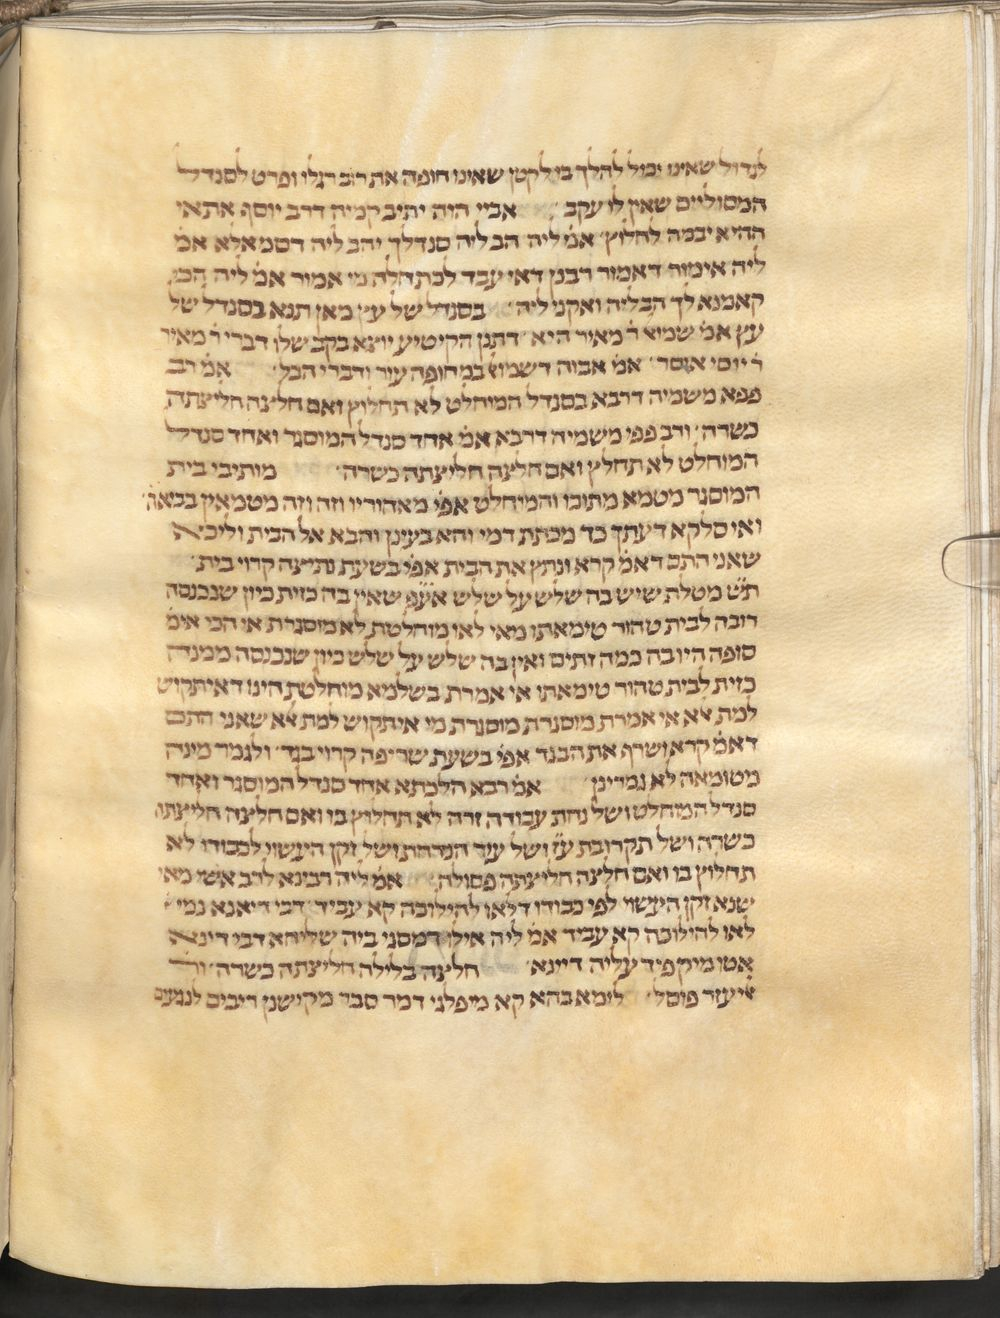 לגדול שאינו יכול להלך בו לקטן שאינו חופה את רוב רגלו ופרט לסנדל
המסוליים שאין לו עקב ׳ אביי הוה יתיב קמיה דרב יוסף אתאי
ההיא יבמה לחלוץ׳ אמ׳ ליה הב ליה סנדלך יהב ליה דסמאלא אמ׳
ליה אימור דאמור רבנן דאי עבד לכתחלה מי אמור אמ׳ ליה הכי
קאמנא לך הב ליה ואקני ליה ׳ בסנדל של עץ מאן תנא בסנדל של
עץ אמ׳ שמוא׳ ר׳ מאיר היא׳ דתנן הקיטיע יוצא בקב שלו דברי ר׳ מאיר
ר׳ יוסי אוסר׳ אמ׳ אבוה דשמוא׳ במחופה עור ודברי הכל׳ אמ׳ רב
פפא משמיה דרבא בסנדל המוחלט לא תחלוץ ואם חלצה חליצתה
כשרה׳ ורב פפי משמיה דרבא אמ׳ אחד סנדל המוסגר ואחד סנדל
המוחלט לא תחלץ ואם חלצה חליצתה כשרה׳ מותיבי בית
המוסגר מטמא מתוכו והמוחלט אפי׳ מאחוריו וזה וזה מטמאין בביאה׳
ואי סלקא דעתך כד מכתת דמי והא בעינן והבא אל הבית וליכא
שאני התם דאמ׳ קרא ונתץ את הבית אפי׳ בשעת נתיצה קרוי בית׳
ת״ש מטלת שיש בה שלש על שלש אע״פ שאין בה כזית כיון שנכנסה
רובה לבית טהור טימאתו מאי לאו מוחלטת לא מוסגרת אי הכי אימ׳
סופה היו בה כמה זתים ואין בה שלש על שלש כיון שנכנסה ממנה
כזית לבית טהור טימאתו אי אמרת בשלמא מוחלטת היינו דאיתקוש
למת אלא אי אמרת מוסגרת מוסגרת מי איתקוש למת אלא שאני התם
דאמ׳ קרא ושרף את הבגד אפי׳ בשעת שריפה קרוי בגד׳ ולגמר מינה
מטומאה לא גמרינן׳ אמ׳ רבא הלכתא אחד סנדל המוסגר ואחד
סנדל המוחלט ושל נחת עבודה זרה לא תחלוץ בו ואם חלצה חליצתה
כשרה ושל תקרובת ע״ז ושל עיר הנדחת ושל זקן העשוי לכבודו לא
תחלוץ בו ואם חלצה חליצתה פסולה׳ אמ׳ ליה רבינא לרב אשי מאי
שנא זקן העשוי לפי כבודו דלאו להילוכה קא עביד׳ דבי דיאנא נמי
לאו להילוכה קא עביד אמ׳ ליה אילו דמסני ביה שליחא דבי דינא
אטו מיקפיד עליה דיינא׳ חלצה בלילה חליצתה כשרה׳ ור׳
אליעזר פוסל׳ לימא בהא קא מיפלגי דמר סבר מקישנן ריבים לנגעים